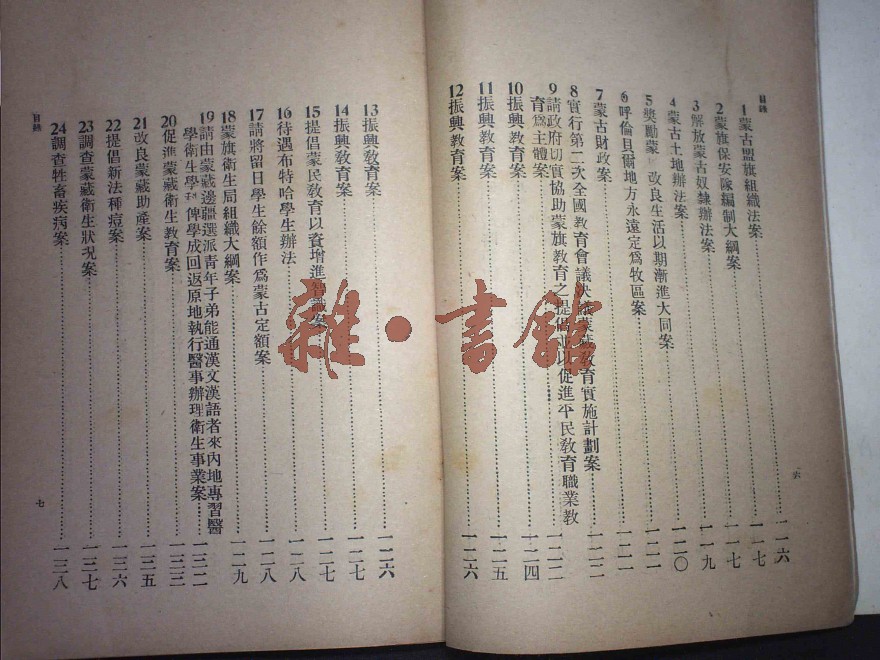 目錄
1 蒙古盟旗組織法案……一一六
2 蒙旗保安隊編制大綱案……一一七
3 解放蒙古奴隸辦法案……一一七
4 蒙古土地辦法案……一一九
5 獎勵蒙 改良生活以期漸進大同案……一二〇
6 呼倫貝爾地方永遠定爲牧區案……一二一
7 蒙古財政案……一二二
8 實行第二次全國教育會議決議蒙藏教育實施計劃案
9 請政府切實協助蒙旗教育之提倡 以促進平民教育職業教
育爲主體案……一二三
10 振興教育案……一二四
11 振興教育案……一二五
12 振興教育案……一二六
六
13 振興敎育案……一二六
14 振興敎育案……一二七
15 提倡蒙民敎育以資增進智識案……一二七
16 待遇布特哈學生辦法……一二八
17 請將留日學生餘額作爲蒙古定額案……一二八
18 蒙旗衛生局組織大綱案……一二九
19 請由蒙藏邊疆選派靑年子弟能通漢文漢語者來內地專習醫
學衛生學 俾學成回返原地執行醫事辦理衛生事業案……一三二
20 促進蒙藏衛生敎育案……一三三
21 改良蒙藏助產案……一三五
22 提倡新法種痘案……一三六
23 調查蒙藏衛生狀況案……一三七
24 調查牲畜疾病案……一三八
目錄
七
雜·書館